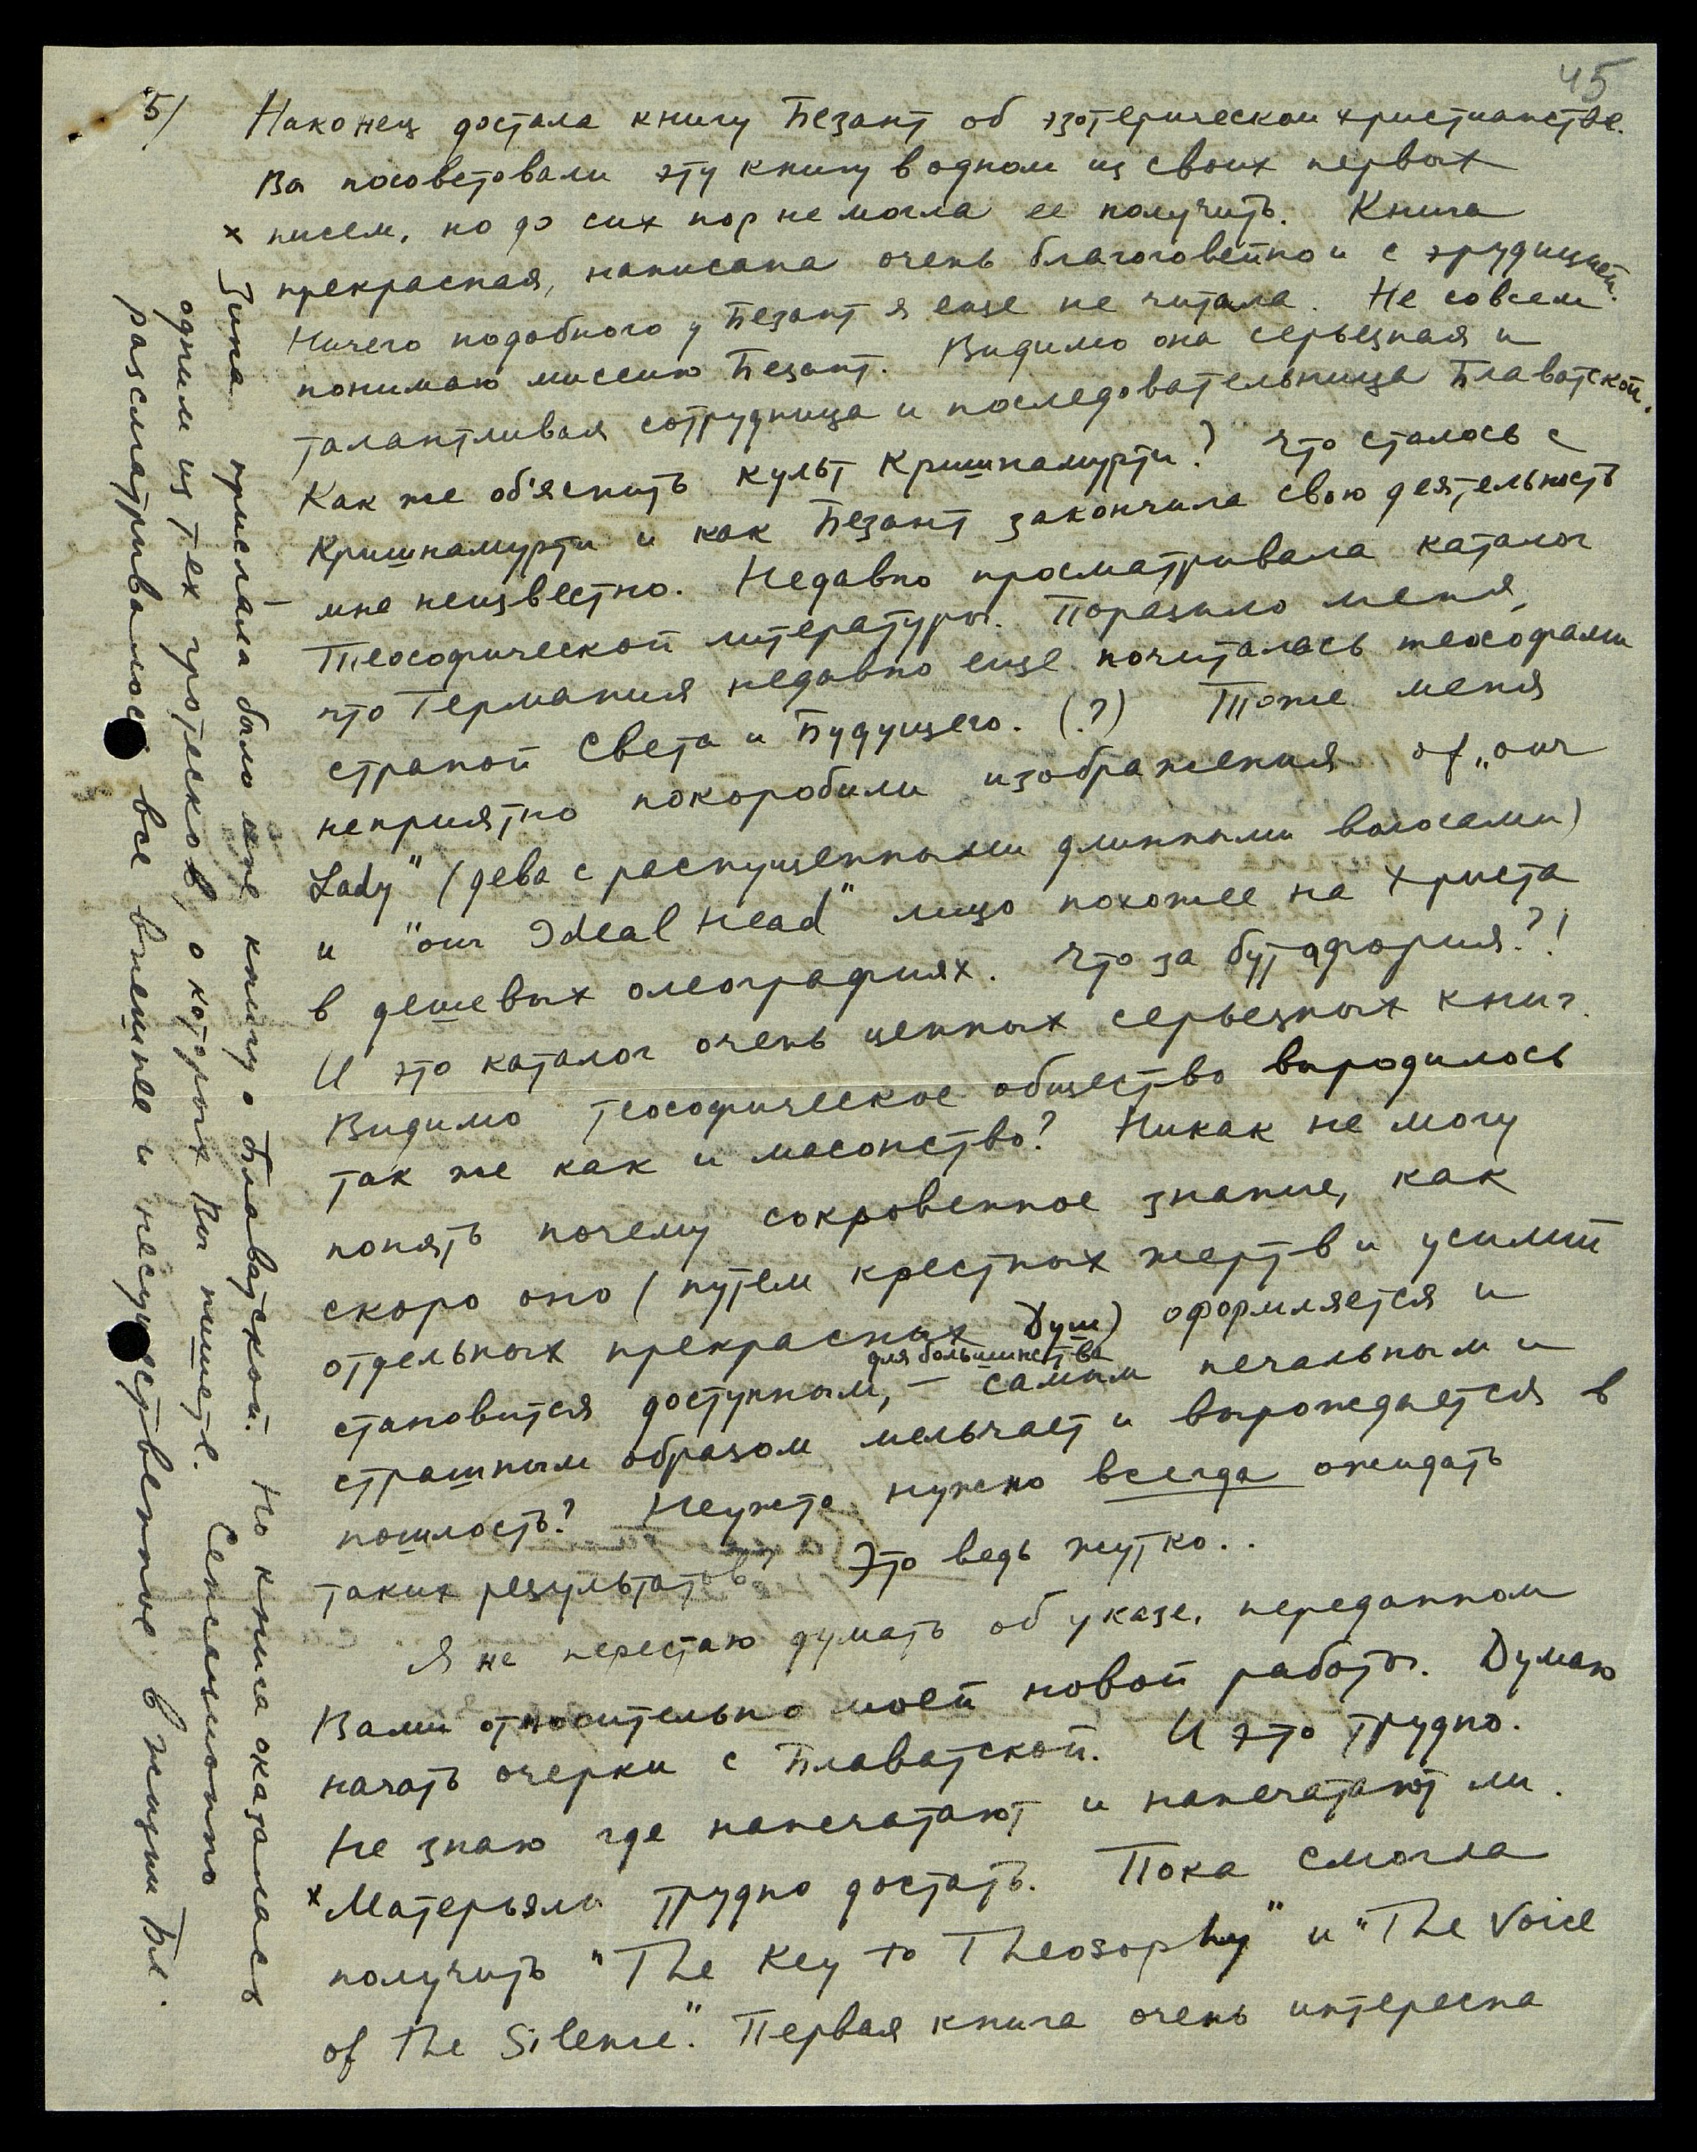 45
5/ Наконец достала книгу Безант об эзотерическом христианстве.
Вы посоветовали эту книгу в одном из своих первых
писем, но до сих пор не могла ее получить. Книга
прекрасная, написана очень благоговейно и с эрудицией.
Ничего подобного у Безант я еще не читала. Не совсем
понимаю миссию Безант. Видимо она серьезная и
талантливая сотрудница и последовательница Блаватской.
Как же об'яснить культ Кришнамурти? Что сталось с
Кришнамурти и как Безант закончила свою деятельность
мне неизвестно. Недавно просматривала каталог
Теософической литературы. Поразило меня,
что Германия недавно еще почиталась теософами
страной Света и Будущего. (?) Тоже меня
неприятно покоробили изображения of „our
Lady" (дева с распущенными длинными волосами)
и "our Ideal Head" лицо похожее на Христа
в дешевых олеографиях. Что за бутафория?!
И это каталог очень ценных серьезных книг.
Видимо теософическое общество выродилось
так же как и масонство? Никак не могу
понять почему сокровенное знание, как
скоро оно (путем крестных жертв и усилий
отдельных прекрасных Душ) оформляется и
для большинства
становится доступным, – самым печальным и
страшным образом мельчает и вырождается в
пошлость? Неужто нужно всегда ожидать
таких результатов? Это ведь жутко..
Я не перестаю думать об указе, переданном
Вами относительно моей новой работы. Думаю
начать очерки с Блаватской. И это трудно.
Не знаю где напечатают и напечатают ли.
x Матерьялы трудно достать. Пока смогла
получить "The Key to Theosophy" и "The Voice
of the Silence." Первая книга очень интересна
x Зина прислала было мне книгу о Блаватской. Но книга оказалась
одним из тех гротесков, о которых Вы пишете. Сенсационно
разсматривалось все внешнее и несущественное в жизни Бл.